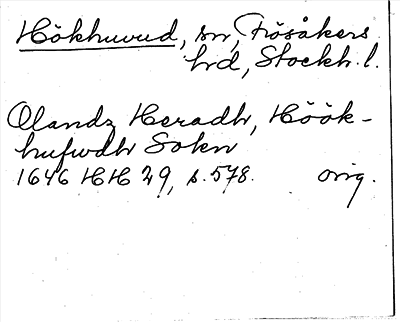 Hökhuvud, sn, Frösåkers
hd, Stockh. l.
Olandz Heradh, Höök-
hufwdh Sokn
1646 HH 29, s. 578. orig.